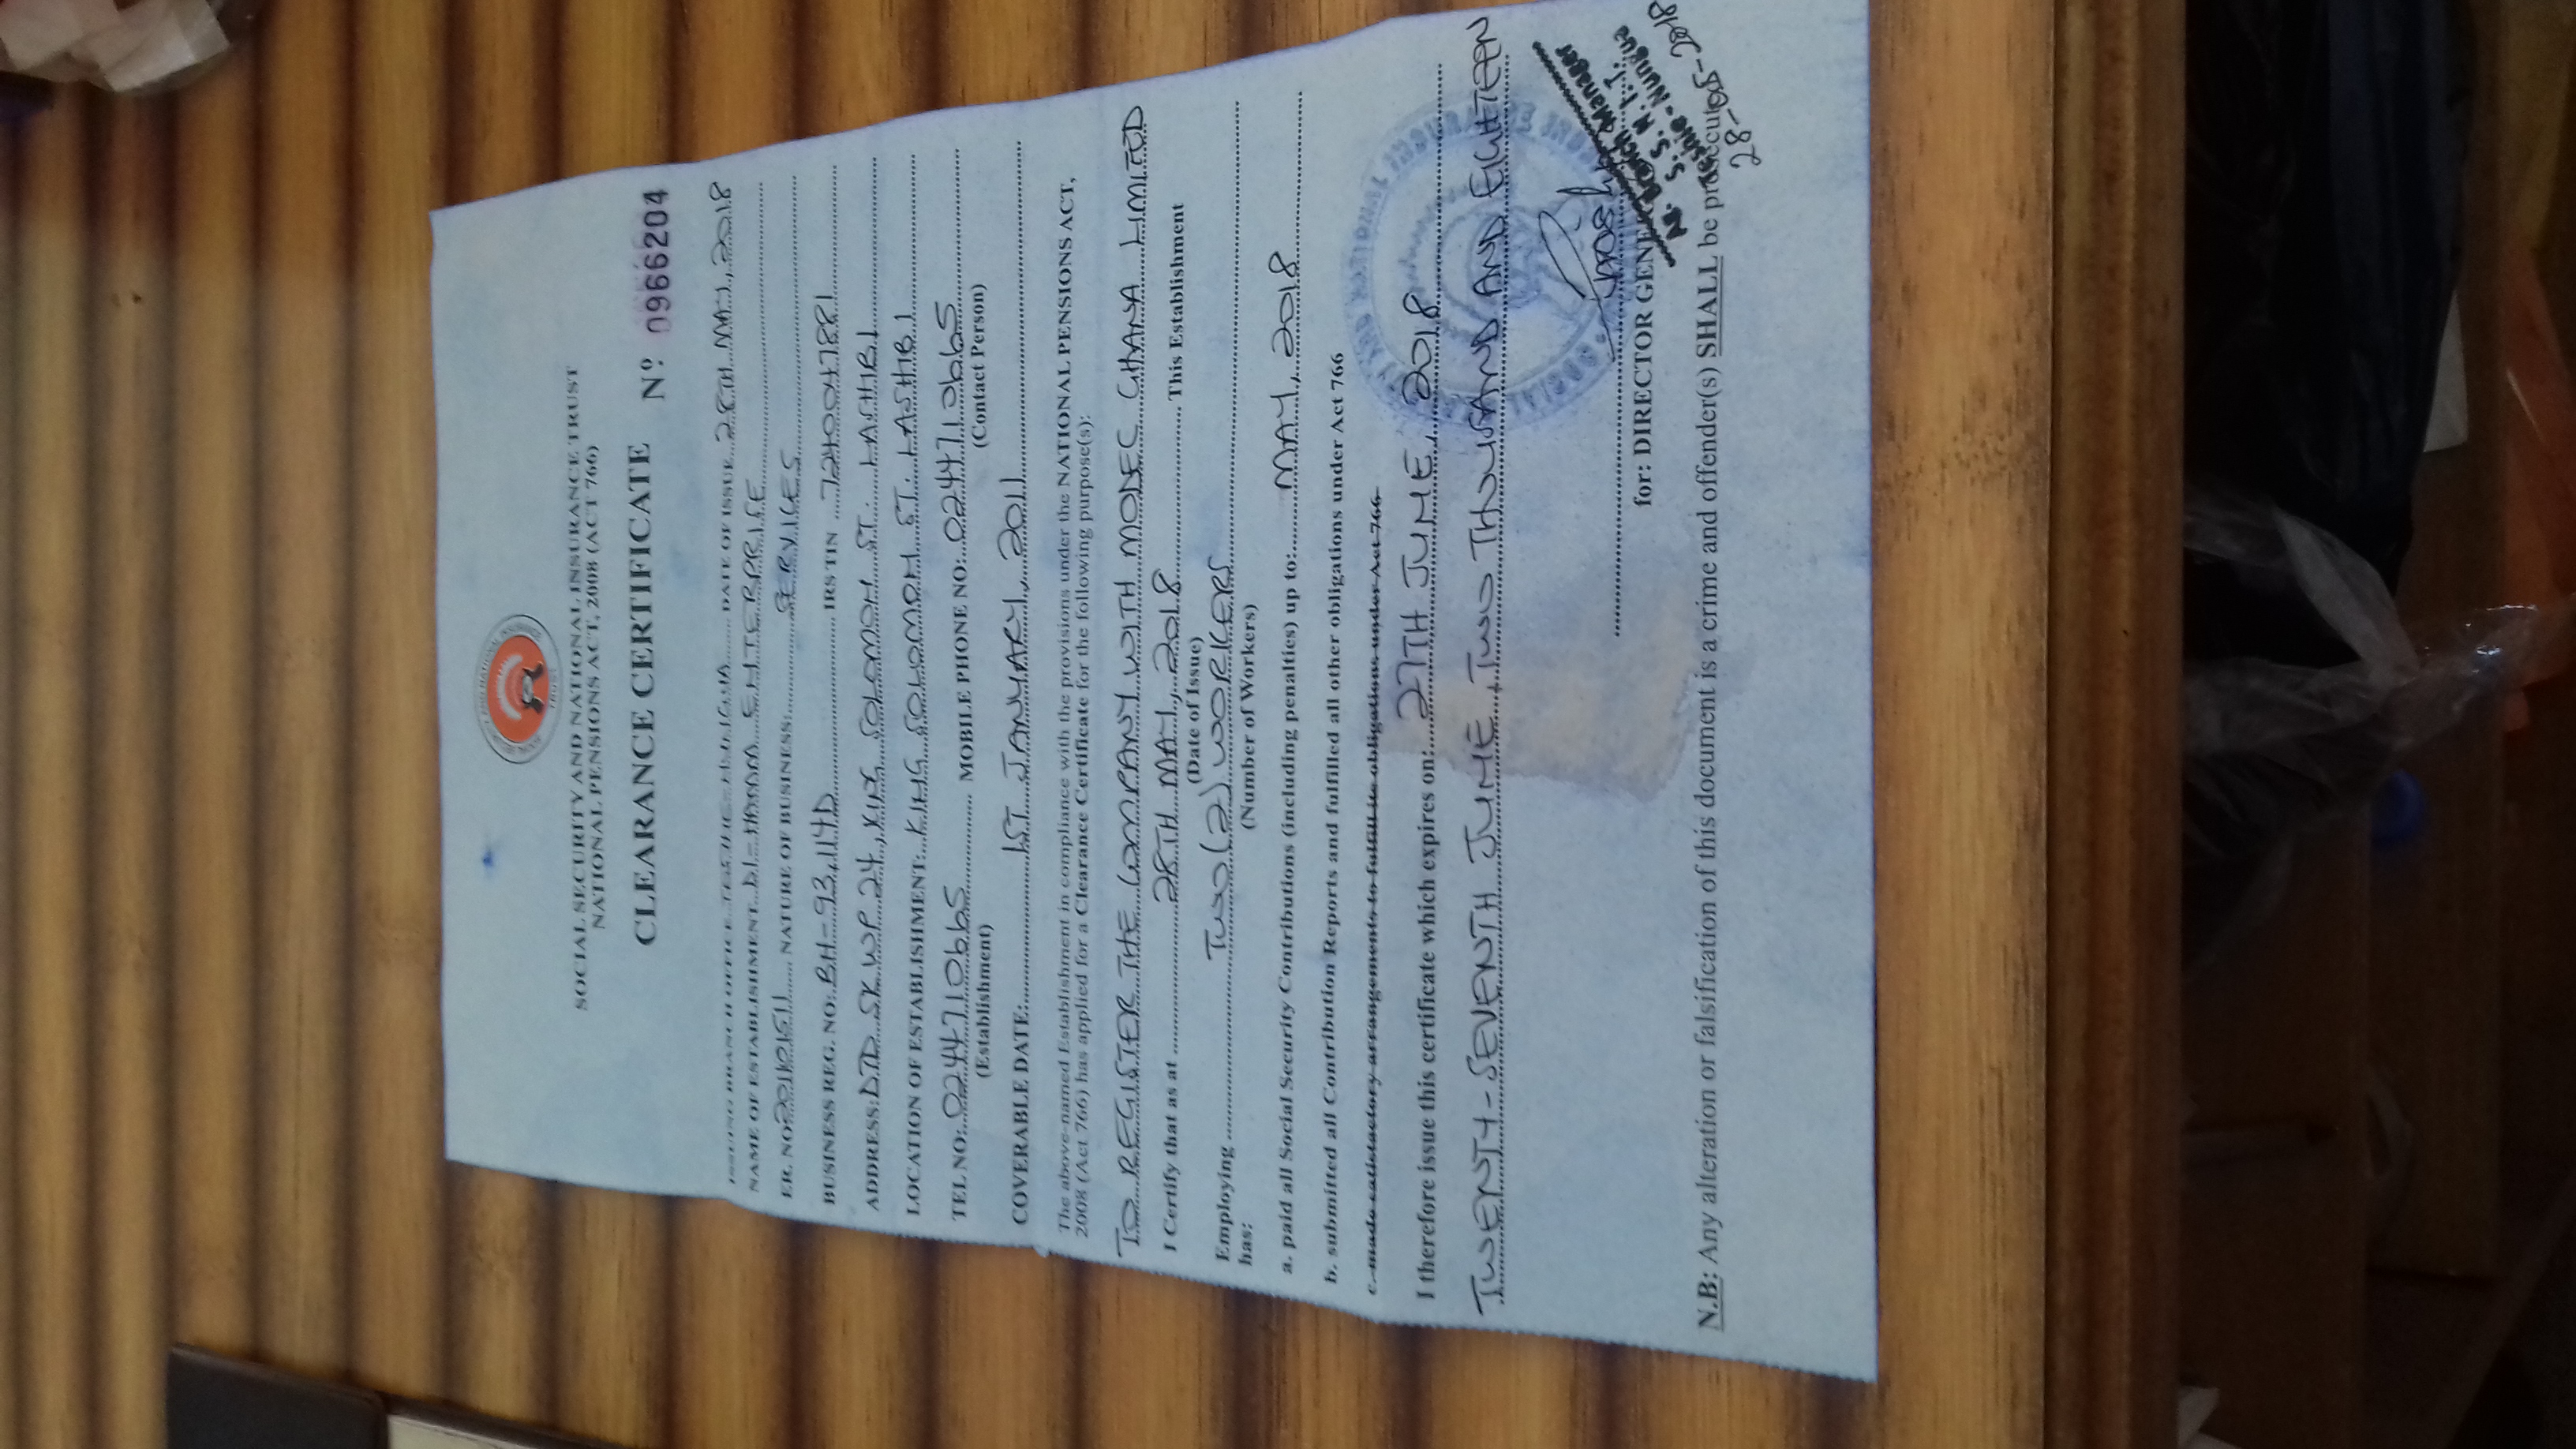 SOCIAL SECURITY AND NATIONAL INSURANCE TRUST
SOCIAL SECURITY AND NATIONAL INSURANCE TRUST
NATIONAL PENSIONS ACT, 2008 (ACT 766)
CLEARANCE CERTIFICATE Nº 0966204
ISSUING BRANCH OFFICE TESHIE-NUNGUA DATE OF ISSUE 28TH MAY, 2018
NAME OF ESTABLISHMENT DI-HAMM ENTERPRISE
ER. NO 201101511 NATURE OF BUSINESS: SERVICES
BUSINESS REG. NO: BN-93,114D IRS TIN 7240047881
ADDRESS: DTD SK WP 24, KING SOLOMON ST. LASHIBI
LOCATION OF ESTABLISHMENT: KING SOLOMON ST. LASHIBI
TEL NO: 0244710665 MOBILE PHONE NO: 0244710665
(Establishment) (Contact Person)
COVERABLE DATE: 1ST JANUARY, 2011
The above-named Establishment in compliance with the provisions under the NATIONAL PENSIONS ACT,
2008 (Act 766) has applied for a Clearance Certificate for the following purpose(s):
TO REGISTER THE COMPANY WITH MODEC GHANA LIMITED
I Certify that as at 28TH MAY, 2018 This Establishment
(Date of Issue)
Employing TWO (2) WORKERS
has: (Number of Workers)
a. paid all Social Security Contributions (including penalties) up to: MAY, 2018
b. submitted all Contribution Reports and fulfilled all other obligations under Act 766
c. made satisfactory arrangements to fulfill its obligations under Act 766
I therefore issue this certificate which expires on: 27TH JUNE, 2018
TWENTY-SEVENTH JUNE, TWO THOUSAND AND EIGHTEEN
for: DIRECTOR GENERAL
Ag. Branch Manager
S. S. N. I. T.
Teshie - Nungua
28-05-2018
N.B: Any alteration or falsification of this document is a crime and offender(s) SHALL be prosecuted